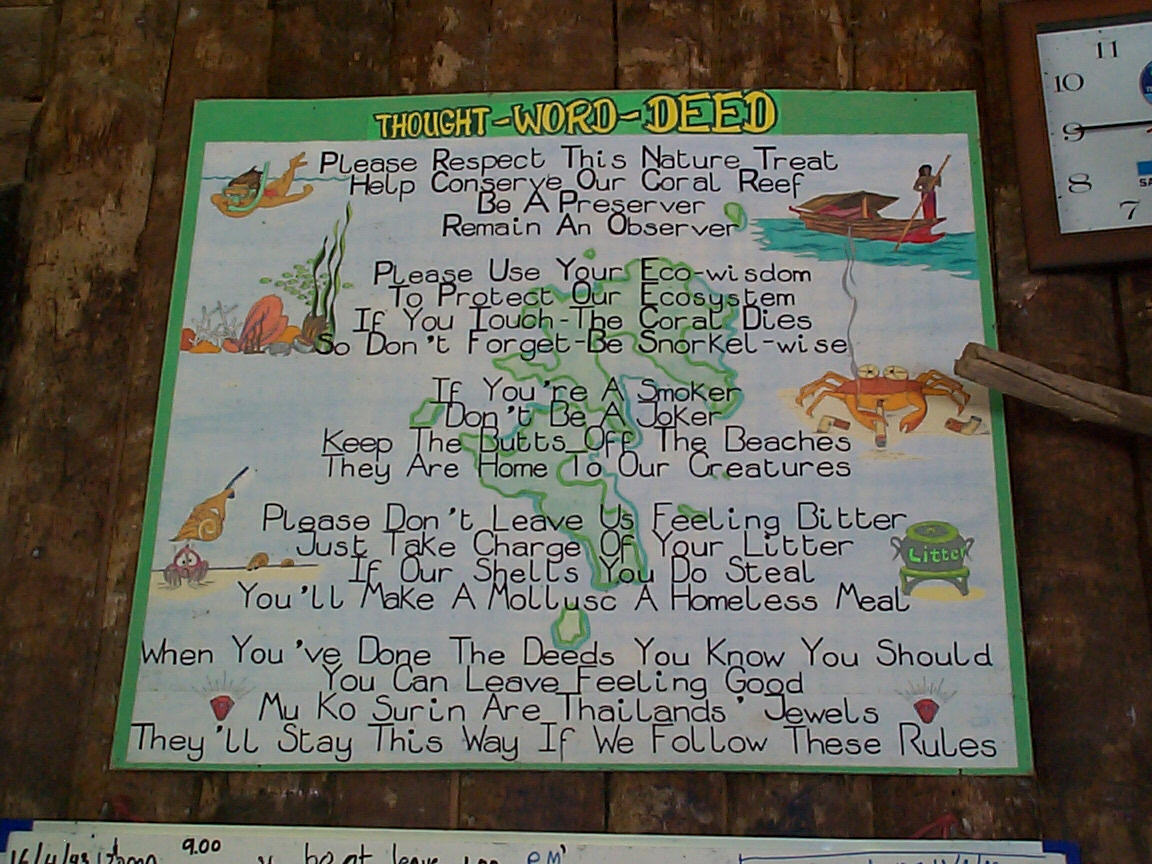 THOUGHT-WORD-DEED
Please Respect This Nature Treat
Help Conserve Our Coral Reef
Be A Preserver
Remain An Observer
Please Use Your Eco-wisdom
To Protect Our Ecosystem
If You Touch-The Coral Dies
So Don't Forget-Be Snorkel-wise
If You're A Smoker
Don't Be A Joker
Keep The Butts Off The Beaches
They Are Home To Our Creatures
Please Don't Leave Us Feeling Bitter
Just Take Charge Of Your Litter
If Our Shells You Do Steal
You'll Make A Mollusc A Homeless Meal
Litter
When You've Done The Deeds You Know You Should
You Can Leave Feeling Good
Mu Ko Surin Are Thailands' Jewels
They'll Stay This Way If We Follow These Rules
11
10
9
8
7
9.00
boat leave